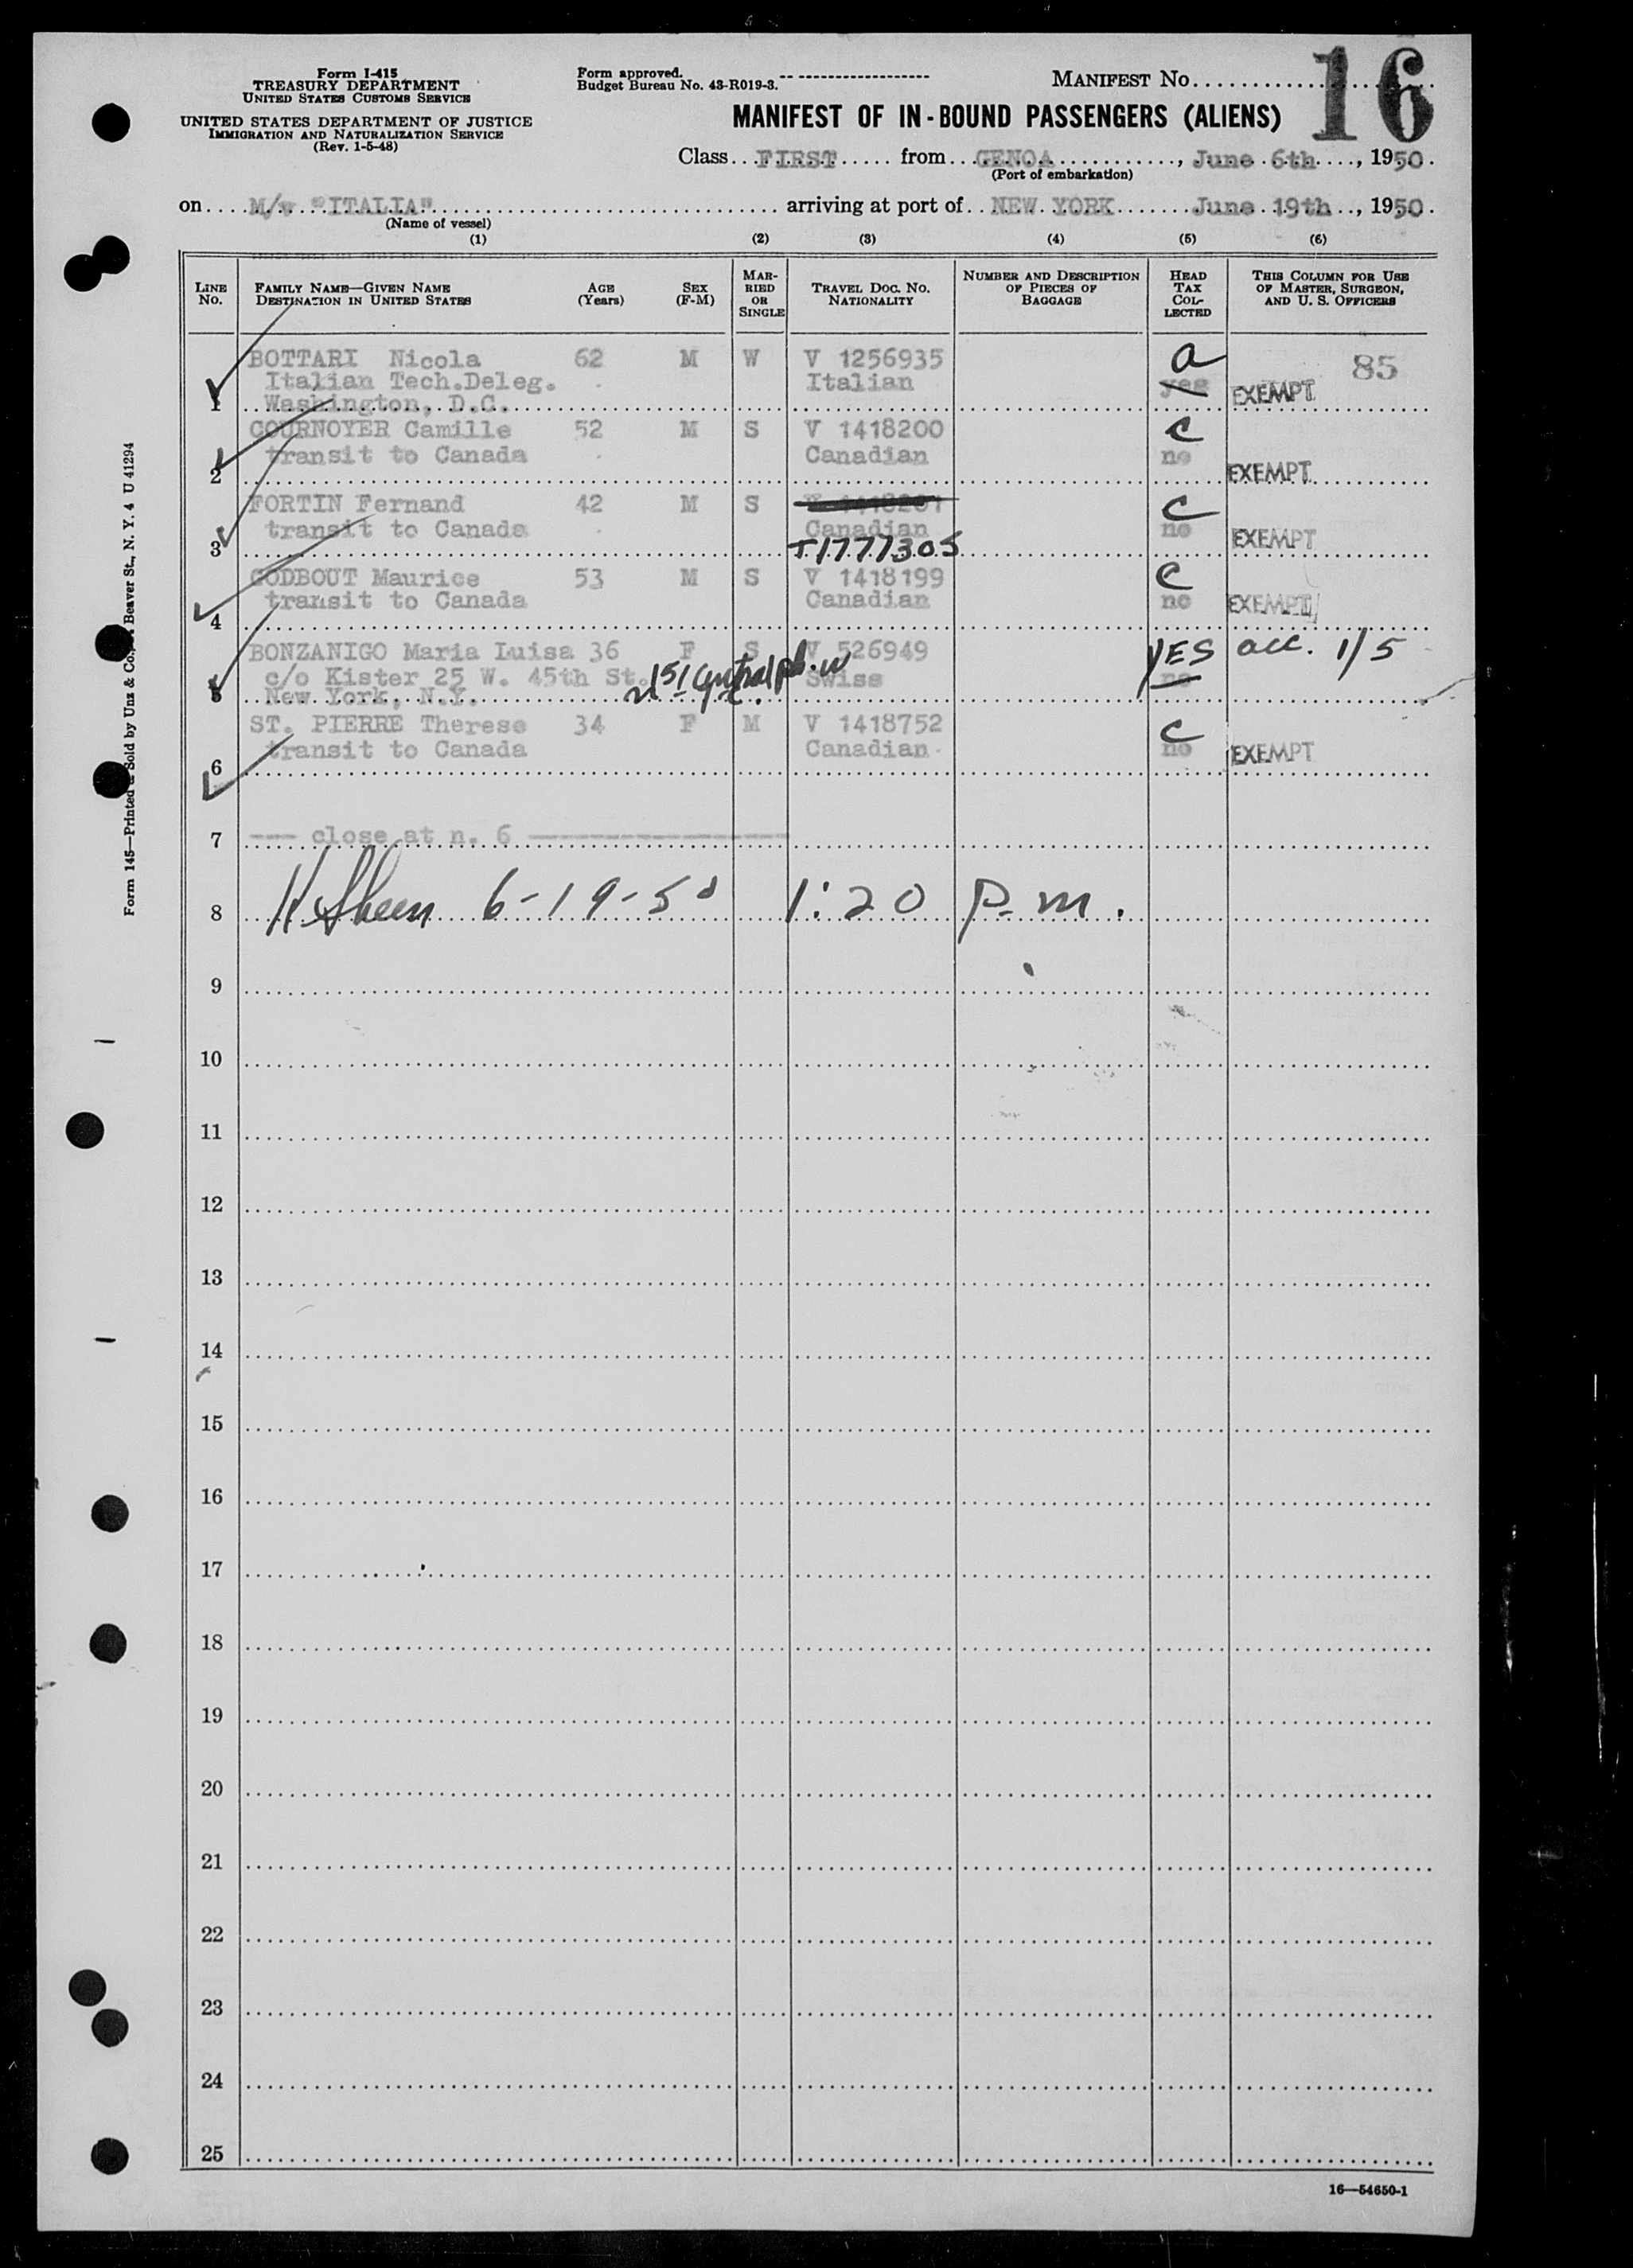 16
Form I-415
TREASURY DEPARTMENT
UNITED STATES CUSTOMS SERVICE
UNITED STATES DEPARTMENT OF JUSTICE
IMMIGRATION AND NATURALIZATION SERVICE
(Rev. 1-5-48)
Form approved.
Budget Bureau No. 43-R019-3.
MANIFEST No.
MANIFEST OF IN-BOUND PASSENGERS (ALIENS)
Class FIRST from GENOA, June 6th, 1950.
(Port of embarkation)
on M/v "ITALIA" arriving at port of NEW YORK June 19th, 1950.
(Name of vessel)
(1) (2) (3) (4) (5) (6)
LINE No. FAMILY NAME—GIVEN NAME DESTINATION IN UNITED STATES AGE (Years) SEX (F-M) MARRIED OR SINGLE TRAVEL DOC. NO. NATIONALITY NUMBER AND DESCRIPTION OF PIECES OF BAGGAGE HEAD TAX COLLECTED THIS COLUMN FOR USE OF MASTER, SURGEON, AND U. S. OFFICERS
BOTTARI Nicola 62 M W V 1256935 a 85
Italian Tech.Deleg. Italian yes EXEMPT
1 Washington, D.C.
COURNOYER Camille 52 M S V 1418200 c
transit to Canada Canadian no
2 EXEMPT
FORTIN Fernand 42 M S V 1418201 c
transit to Canada Canadian no EXEMPT
3 T1777305
GODBOUT Maurice 53 M S V 1418199 c
transit to Canada Canadian no EXEMPT
4
BONZANIGO Maria Luisa 36 F S V 526949 YES acc. 1/5
c/o Kister 25 W. 45th St. 151 Central pk. w Swiss no
5 New York, N.Y.
ST. PIERRE Therese 34 F M V 1418752 c
transit to Canada Canadian no EXEMPT
6
7 --- close at n. 6 ---
8 6-19-50 1:20 P.m.
9
10
11
12
13
14
15
16
17
18
19
20
21
22
23
24
25
16—54650-1
Form 145—Printed & Sold by Unz & Co. Beaver St., N. Y. 4 U 41294